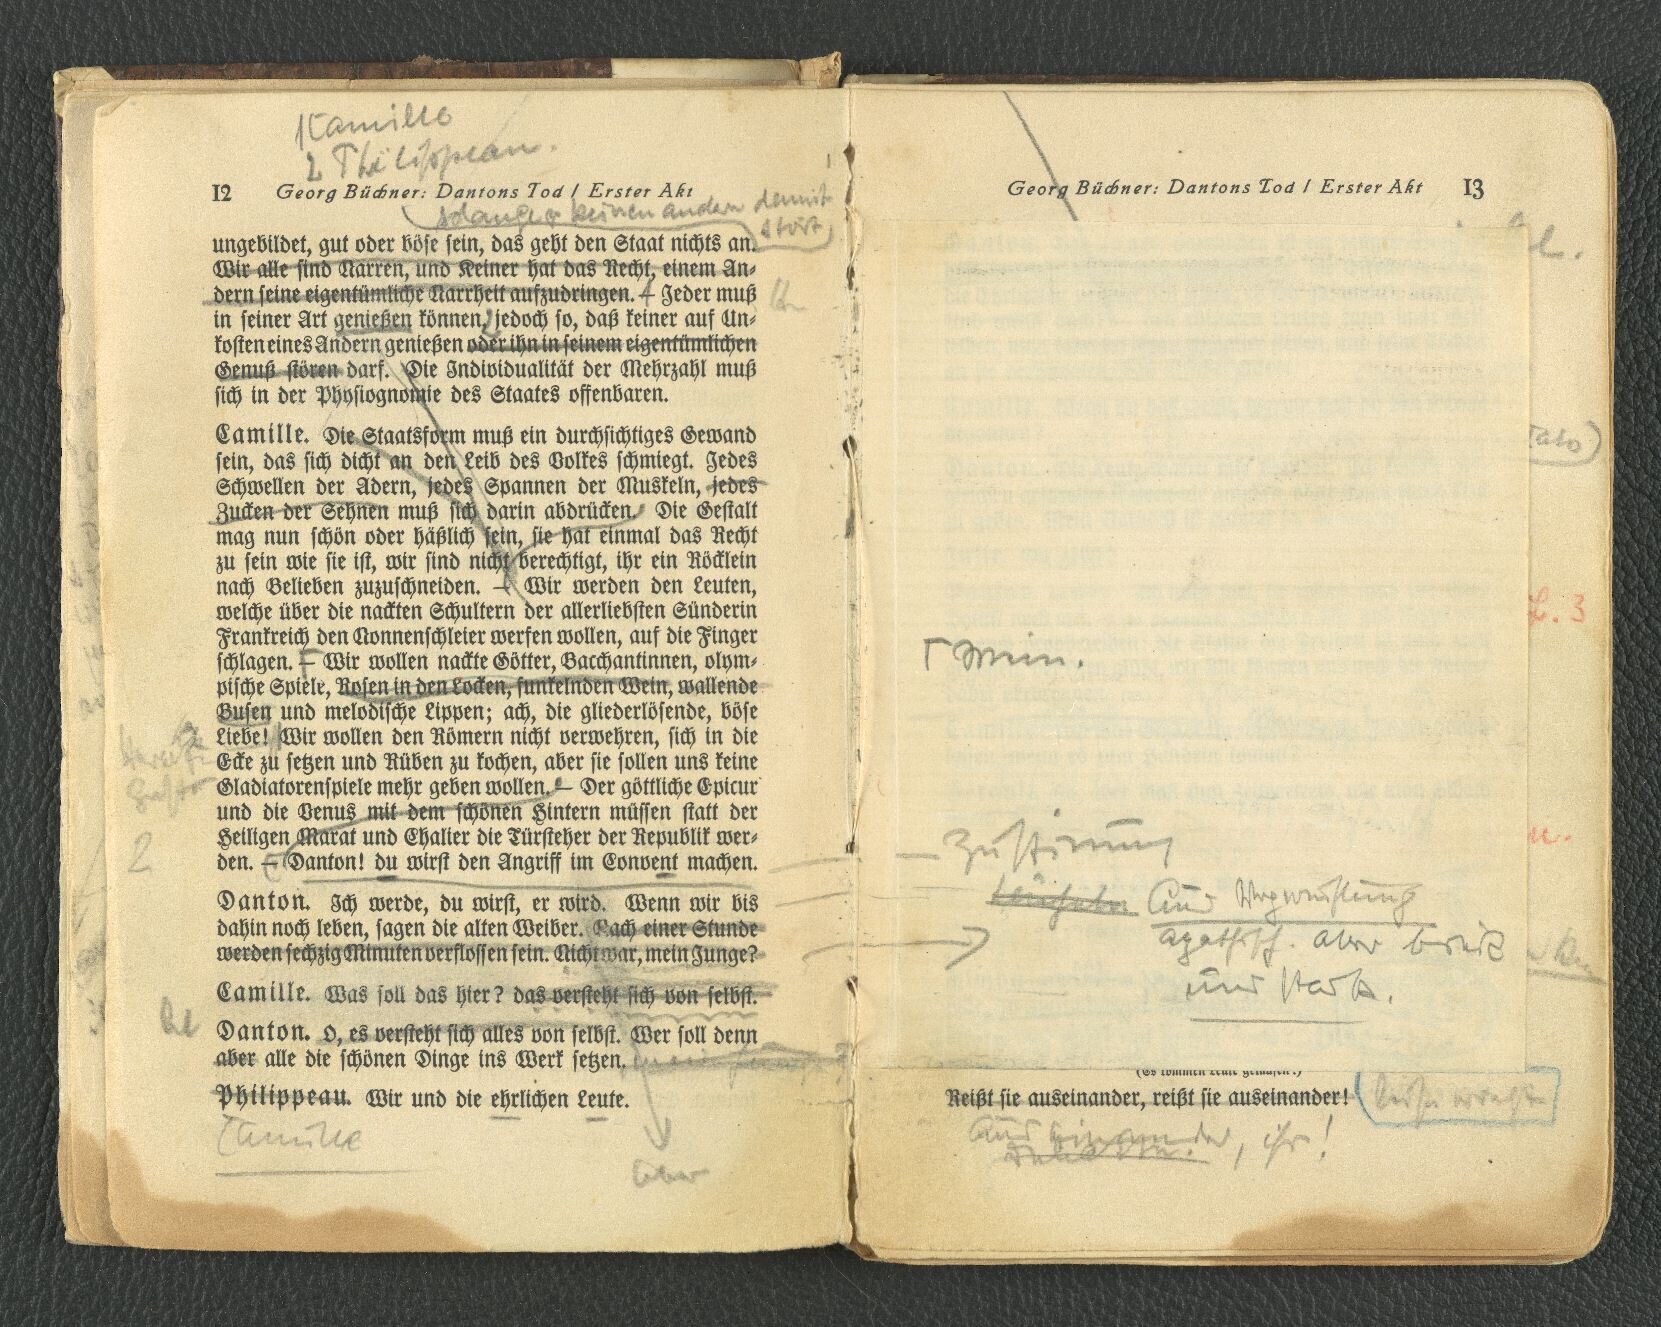 1 Camille
2 Philippeau.
12 Georg Büchner: Dantons Tod / Erster Akt
solange er keinen andern damit
stört
ungebildet, gut oder böse sein, das geht den Staat nichts an.
Wir alle sind Narren, und Keiner hat das Recht, einem An-
dern seine eigentümliche Narrheit aufzudringen. — Jeder muß
in seiner Art genießen können, jedoch so, daß keiner auf Un-
kosten eines Andern genießen oder ihn in seinem eigentümlichen
Genuß stören darf. Die Individualität der Mehrzahl muß
sich in der Physiognomie des Staates offenbaren.
Camille. Die Staatsform muß ein durchsichtiges Gewand
sein, das sich dicht an den Leib des Volkes schmiegt. Jedes
Schwellen der Adern, jedes Spannen der Muskeln, jedes
Zucken der Sehnen muß sich darin abdrücken. Die Gestalt
mag nun schön oder häßlich sein, sie hat einmal das Recht
zu sein wie sie ist, wir sind nicht berechtigt, ihr ein Röcklein
nach Belieben zuzuschneiden. — Wir werden den Leuten,
welche über die nackten Schultern der allerliebsten Sünderin
Frankreich den Nonnenschleier werfen wollen, auf die Finger
schlagen. — Wir wollen nackte Götter, Bacchantinnen, olym-
pische Spiele, Rosen in den Locken, funkelnden Wein, wallende
Busen und melodische Lippen; ach, die gliederlösende, böse
Liebe! Wir wollen den Römern nicht verwehren, sich in die
Ecke zu setzen und Rüben zu kochen, aber sie sollen uns keine
Gladiatorenspiele mehr geben wollen. — Der göttliche Epicur
und die Venus mit dem schönen Hintern müssen statt der
Heiligen Marat und Chalier die Türsteher der Republik wer-
den. — Danton! du wirst den Angriff im Convent machen.
2
Danton. Ich werde, du wirst, er wird. Wenn wir bis
dahin noch leben, sagen die alten Weiber. Nach einer Stunde
werden sechzig Minuten verflossen sein. Nicht war, mein Junge?
Camille. Was soll das hier? das versteht sich von selbst.
Danton. O, es versteht sich alles von selbst. Wer soll denn
aber alle die schönen Dinge ins Werk setzen.
Philippeau. Wir und die ehrlichen Leute.
Camille
aber
Georg Büchner: Dantons Tod / Erster Akt 13
Zustimmung
Aus
aber
und stark.
(Es kommen Leute gelaufen.)
Reißt sie auseinander, reißt sie auseinander!
Auseinander, ihr!